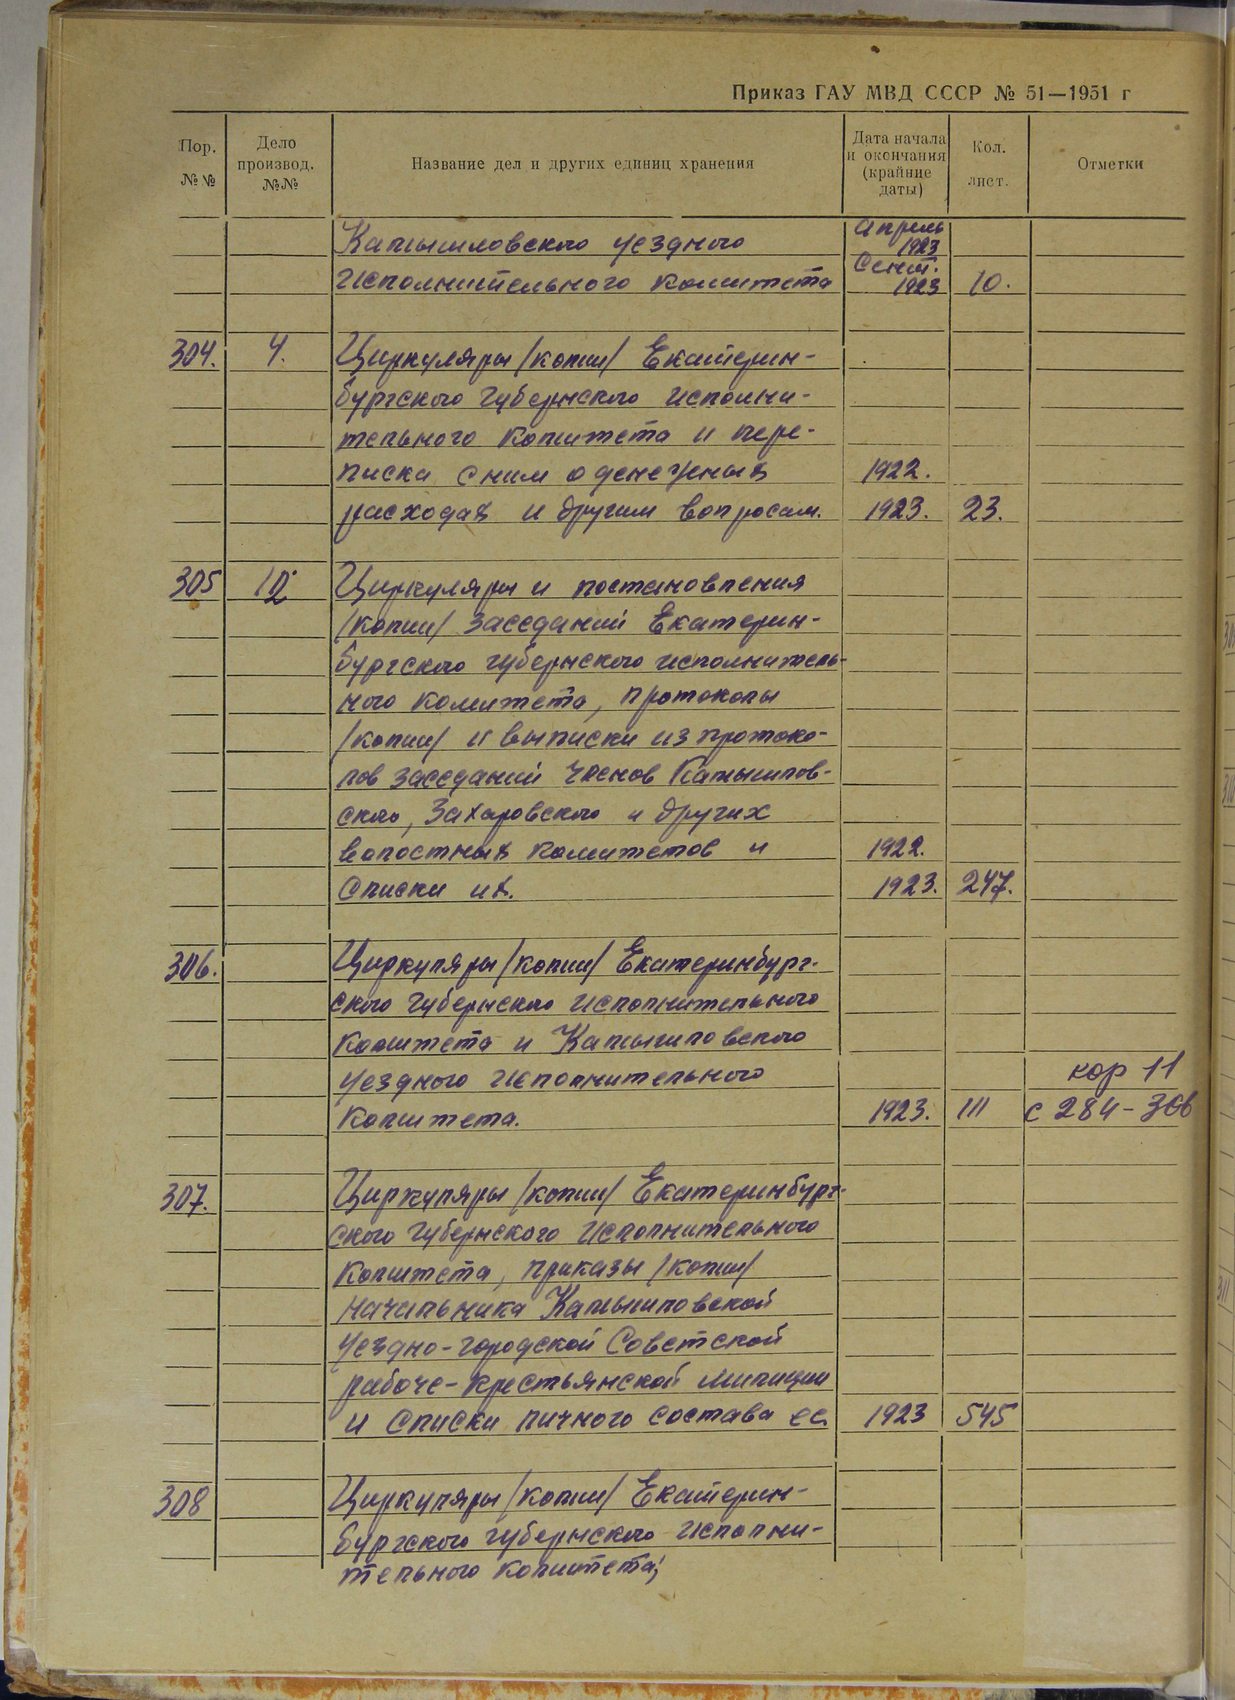 Приказ ГАУ МВД СССР № 51—1951 г
Пор. №№ Дело производ. №№ Название дел и других единиц хранения Дата начала и окончания (крайние даты) Кол. лист. Отметки
Камышловского уездного апрель 1923
Исполнительного комитета Сент. 1923 10.
304. 4. Циркуляры /копии/ Екатерин-
бургского губернского исполни-
тельного комитета и пере-
писка с ним о денежных 1922.
расходах и другим вопросам. 1923. 23.
305 12 Циркуляры и постановления
/копии/ заседаний Екатерин-
бургского губернского исполнитель-
ного комитета, протоколы
/копии/ и выписки из протоко-
лов заседаний членов Камышлов-
ского, Захаровского и других
волостных комитетов и 1922.
списки их. 1923. 247.
306. Циркуляры /копии/ Екатеринбург-
ского губернского исполнительного
комитета и Камышловского
уездного исполнительного кор 11
комитета. 1923. 111 с 284-306
307. Циркуляры /копии/ Екатеринбург-
ского губернского исполнительного
комитета, приказы /копии/
начальника Камышловской
уездно-городской Советской
рабоче-крестьянской милиции
и списки личного состава ее. 1923 545
308 Циркуляры /копии/ Екатерин-
бургского губернского исполни-
тельного комитета;